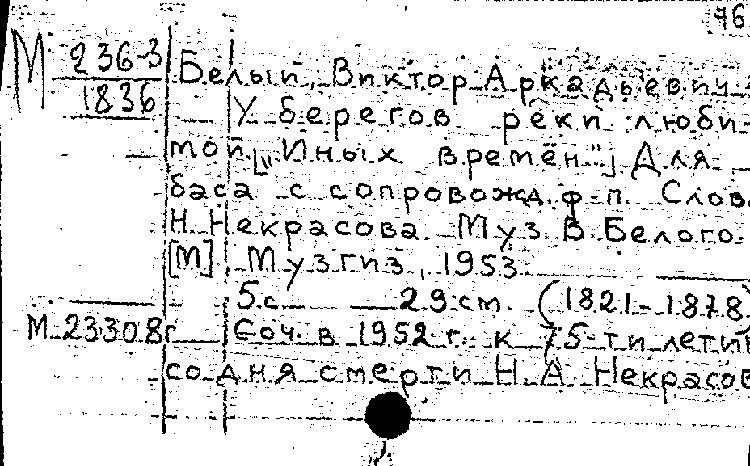 76
М 236-3
1836
Белый, Виктор Аркадьевич
У берегов реки люби-
мой. [„Иных времён"] Для
баса с сопровожд. ф-п. Слов.
Н. Некрасова. Муз. В. Белого.
[М], Музгиз, 1953.
5 с. 29 см. (1821-1878)
М-23308г Соч. в 1952 г. к 75-ти летию
со дня смерти Н. А. Некрасов